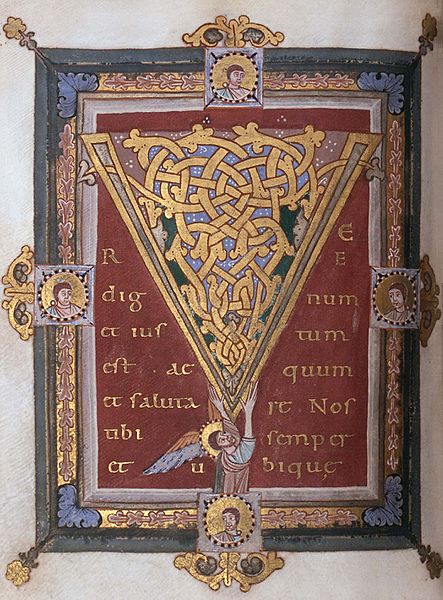 V E
R E
dig num
et ius tum
est ae quum
et saluta re Nos
tibi semp er
et u bique